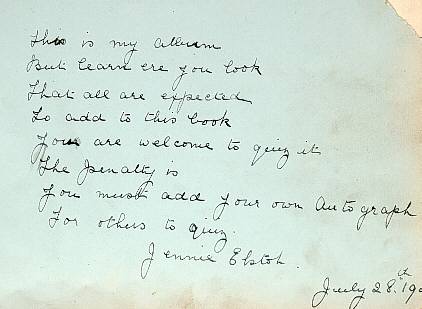 This is my album
But learn ere you look
That all are expected
To add to this book
You are welcome to quiz it
The penalty is
You must add your own Autograph
For others to quiz.
Jennie Elstob.
July 28.th 19